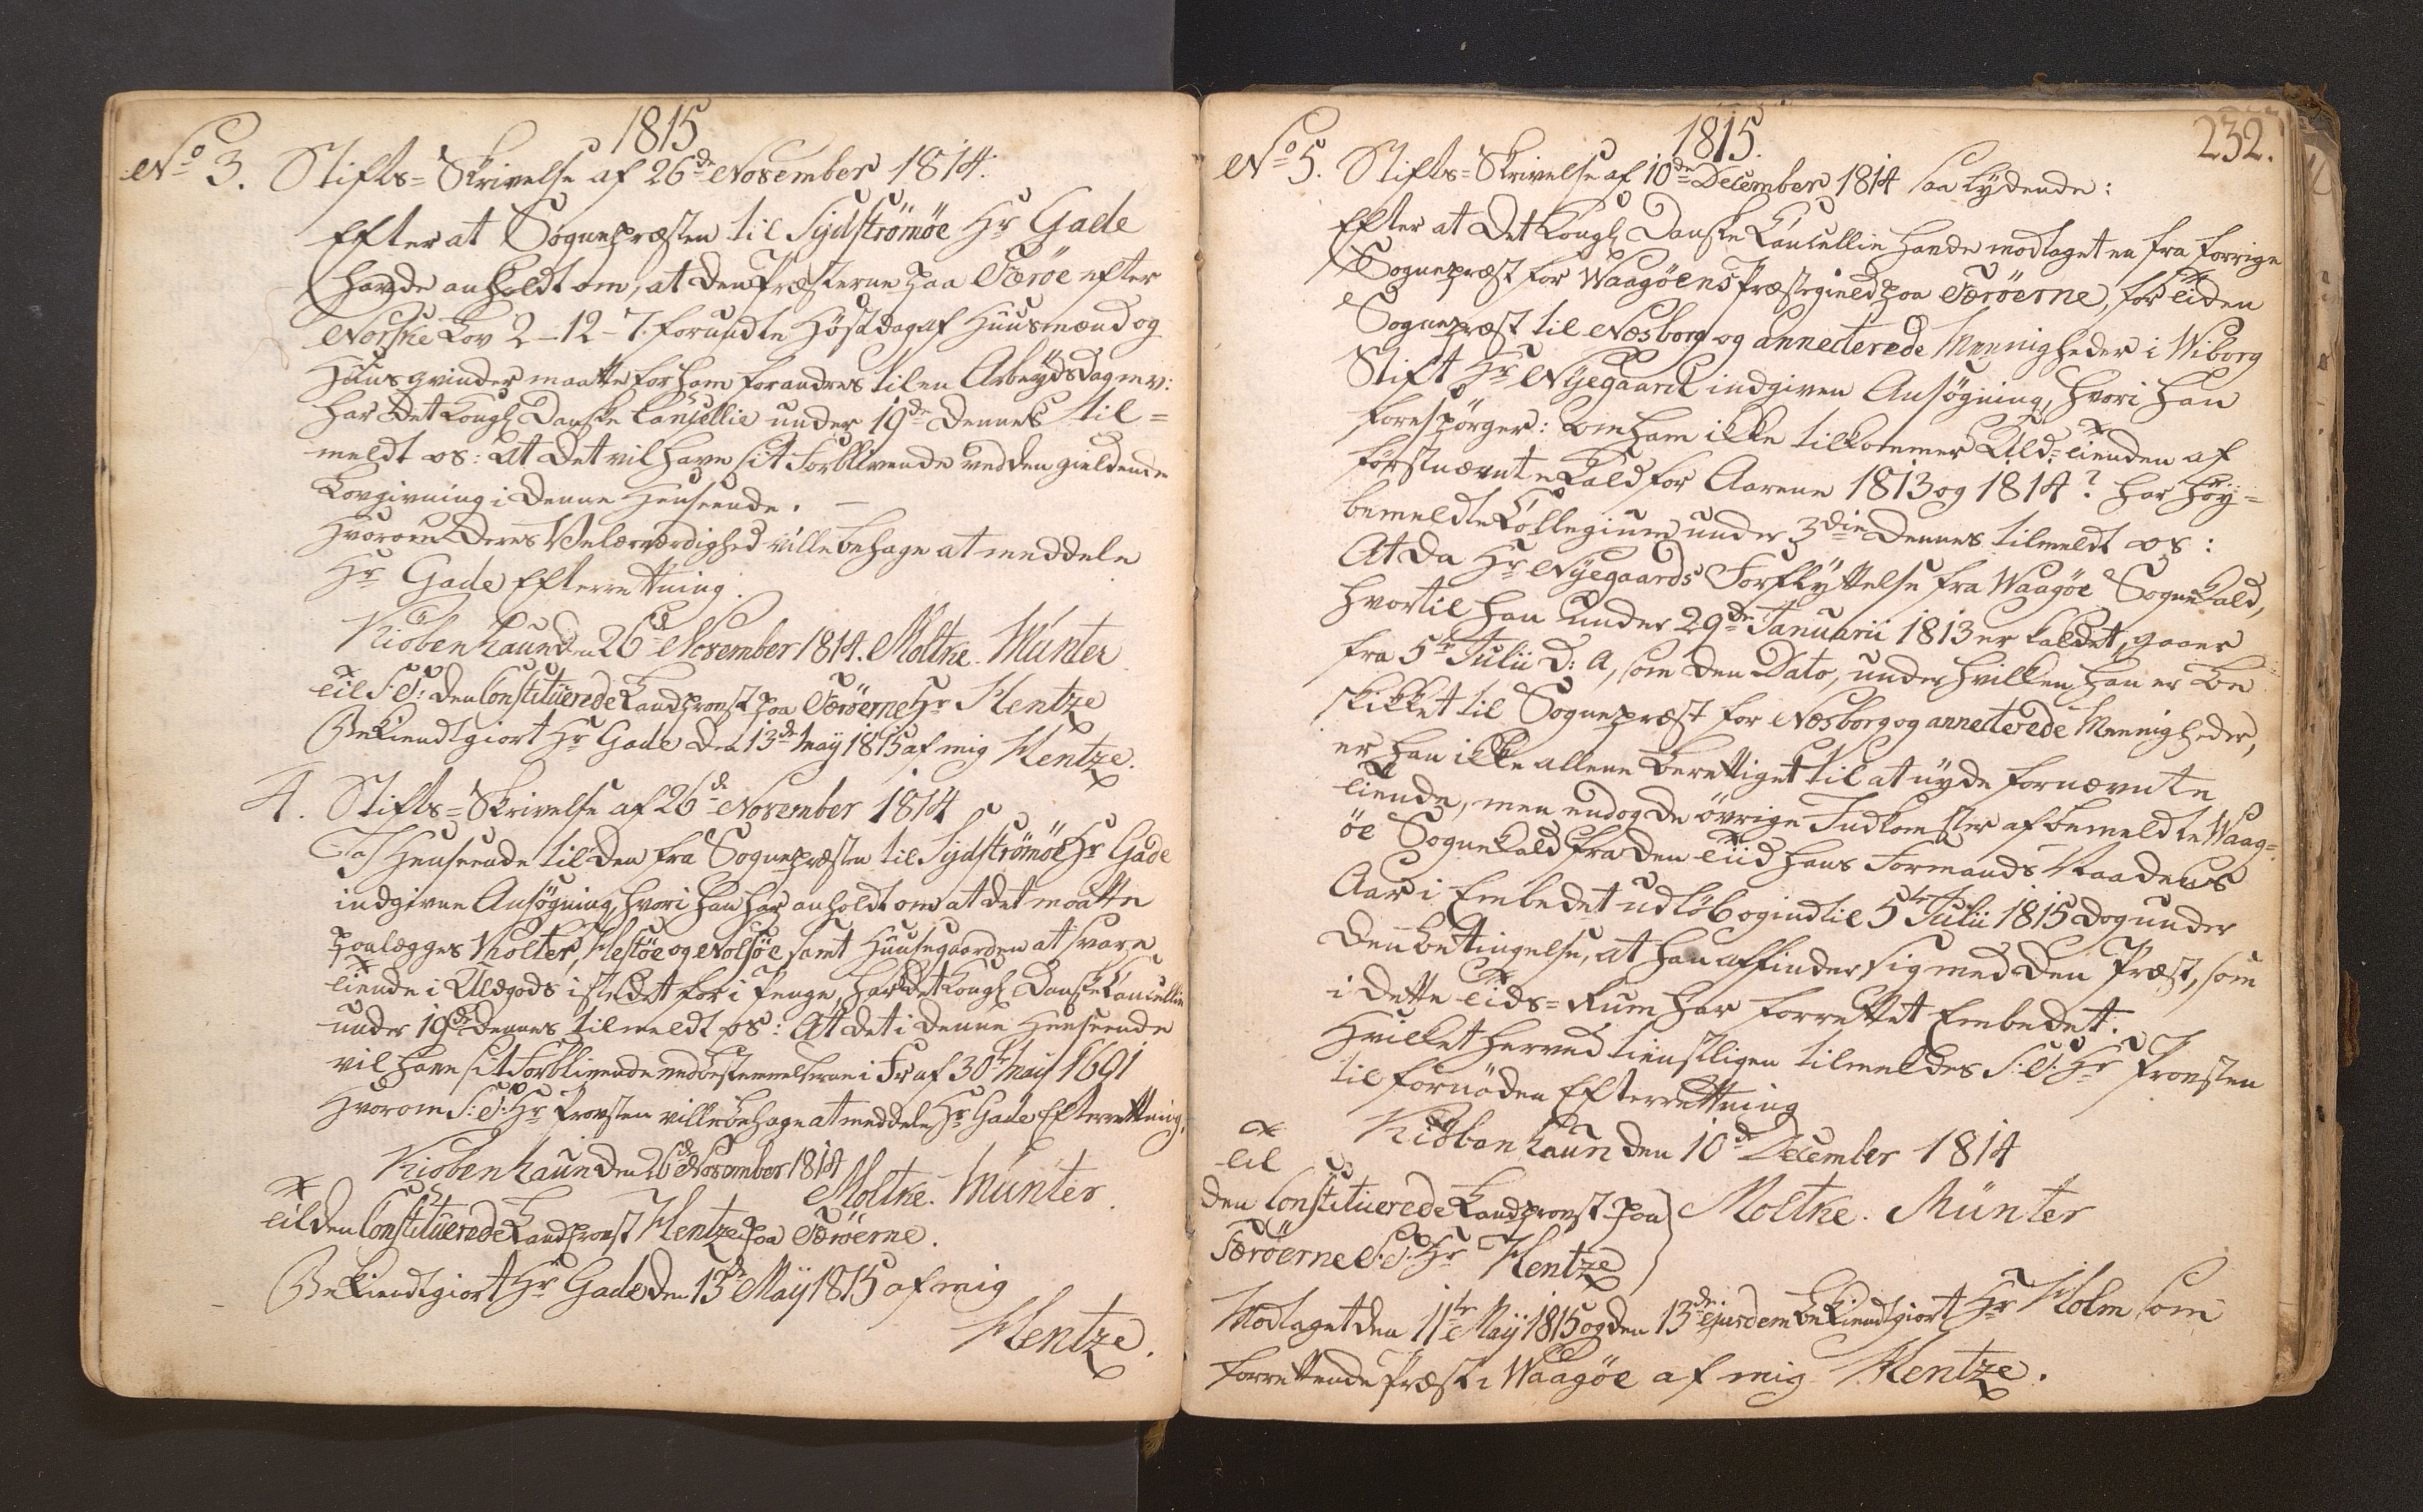 1815
No 3. Stifts-Skrivelse af 26de November 1814.
Efter at Sognepræsten til Sydströmöe Hr Gade
havde anholdt om, at den Præsterne paa Færöe efter
Norske Lov 2-12-7. forundte Höstdag af Huusmænd og
Huusqvinder maatte for ham forandres til en Arbeydsdag m v:
har Det Kongl: Danske Cancellie under 19de dennes til=
meldt os: at det vil have sit Forblivende ved den gieldende
Lovgivning i denne Henseende. —
Hvorom Deres Velærværdighed ville behage at meddele
Hr Gade Efterretning.
Kiöbenhaun den 26de November 1814. Moltke. Münter
Til S: T: den Constituerede Landprovst paa Færöerne Hr Hentze
Bekiendtgiort Hr Gade den 13de May 1815 af mig Hentze.
4. Stifts-Skrivelse af 26de November 1814
I Henseende til den fra Sognepræsten til Sydströmöe Hr Gade
indgivne Ansögning, hvori han har anholdt om at det maatte
paalægges Kolter, Hestöe og Nolsöe samt Huusegaarden at svare
Tiende i Uldgods istedet for i Penge, har det Kongl: Danske Cancellie
under 19de dennes tilmeldt os: At det i denne Henseende
vil have sit Forblivende ved bestemmelserne i Fr af 30te Maii 1691
Hvorom S: T: Hr Provsten ville behage at meddele Hr Gade Efterretning.
Kiöbenhaun den 26de November 1814
Moltke. Münter.
Til den Constituerede Landprovst Hentze paa Færöerne.
Bekiendtgiort Hr Gade den 13de Maÿ 1815 af mig
Hentze.
1815.
232.
No 5. Stifts-Skrivelse af 10de December 1814 saa lydende:
Efter at Det Kongl: Danske Cancellie havde modtaget en fra forrige
Sognepræst for Waagöens Præstegield paa Færöerne, for Tiden
Sognepræst til Næsborg og annecterede Menigheder i Wiborg
Stift Hr Nyegaard indgiven Ansögning, hvori han
forespörger: om ham ikke tilkommer Uld-Tienden af
förstnævnte Kald for Aarene 1813 og 1814? har Höy=
bemeldte Collegium under 3die dennes tilmeldt os:
At da Hr Nyegaards Forflyttelse fra Waagöe Sognekald,
hvortil han under 29de Januarii 1813 er kaldet, gaaer
fra 5te Julii d: A, som den Dato, under hvilken han er be
skikket til Sognepræst for Næsborg og annecterede Menigheder,
er han ikke allene berettiget til at nyde fornævnte
Tiende, men endog de övrige Indkomster af bemeldte Waag=
öe Sognekald fra den Tiid hans Formands Naadens
Aar i Embedet udlöb og indtil 5te Julii 1815 dog under
den betingelse, at han affinder sig med den Præst, som
i dette Tids-Rum har forrettet Embedet.
Hvilket herved tienstligen tilmeldes S: T: Hr Provsten
til fornöden Efterretning
Kiöbenhaun den 10de December 1814
Til
den Constituerede Landprovst paa Moltke. Münter
Færöerne S: T: Hr Hentze
Modtaget den 11te Maÿ 1815 og den 13de ejusdem bekiendtgiort Hr Holm som
forrettende Præst i Waagöe af mig Hentze.